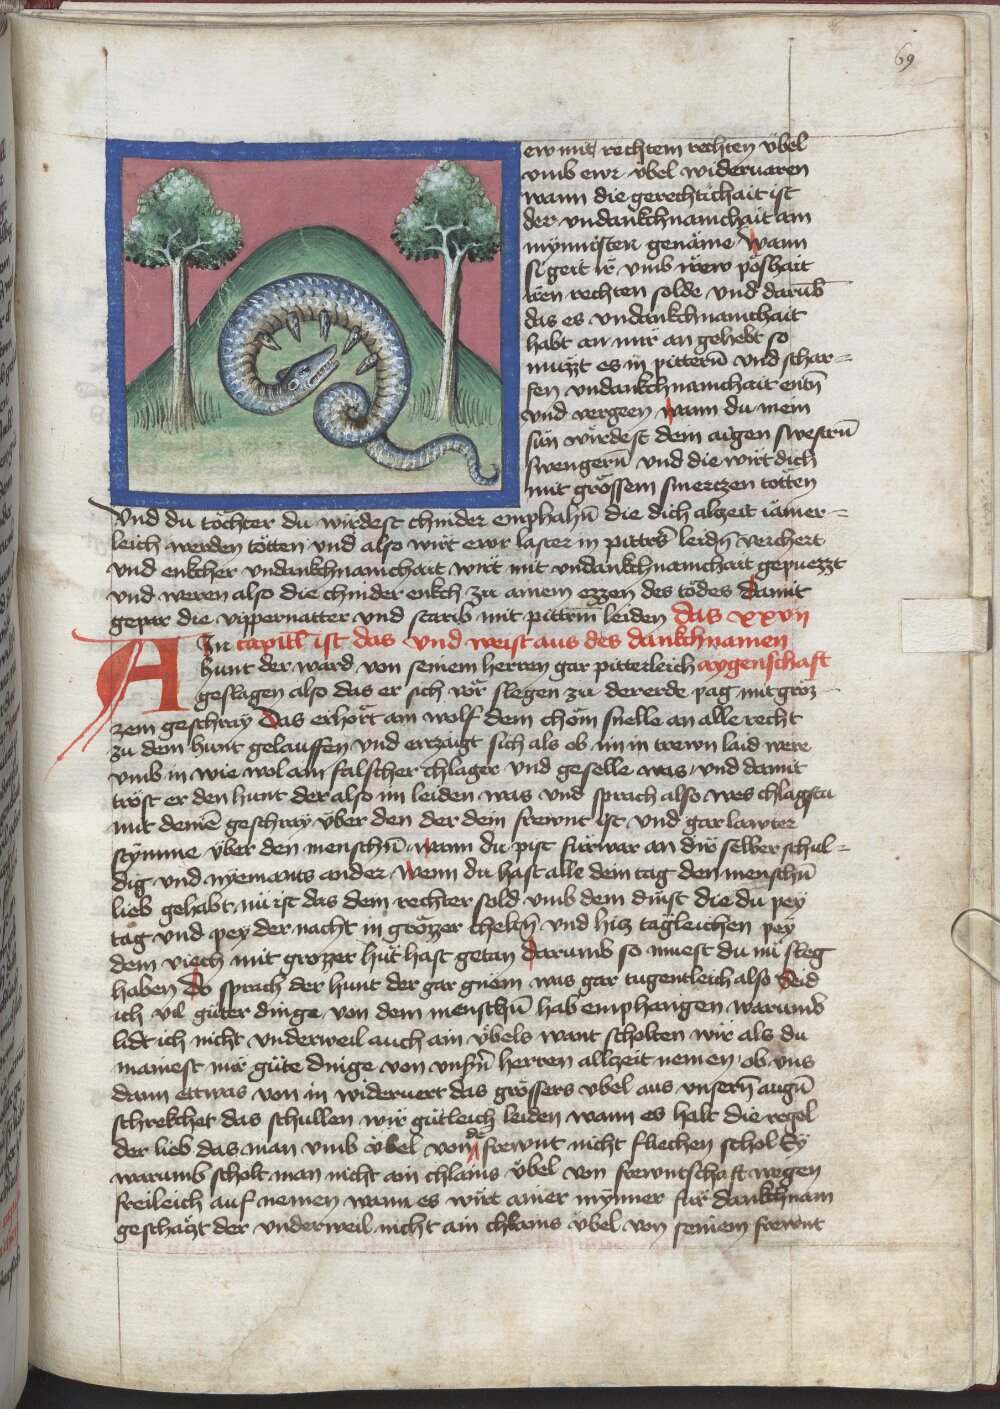 69
ew mit rechtem rechten vbel
vmb ewr vbel widervaren
wann die gerechtichait ist
der vndankchnamchait am
mynnisten genäme wann
si geit ir vmb irew poshait
iren rechten solde vnd darub̄
das es vndankchnamchait
habt an mir an gehebt so
muezt es in pitterñ vnd schar=
fen vndankchnamchait entñ
vnd vergeen wann du mein
sün würdest dein aigen swestrñ
swengerñ vnd die wirt dich
mit grössem smertzen totten
Vnd du töchter du würdest chinder emphahñ die dich alzeit iamer=
leich werden tötten vnd also wirt ewr laster in pittrs leidñ verchert
vnd enkcher vndankchnamchait wirt mit vndankchnamchait gepuezzt
vnd weren also die chinder enkch zu ainem ezzen des tödes damit
gepar die vippernatter vnd starib mit pittrm leiden das xxvii
Ain capitl ist das vnd weist aus des dankchnamen
hunt der ward von seinem herren gar pitterleich aygenschaft
geslagen also das er sich vor slegen zu der erde pag mit gröz
zem geschray das erhört ain wolf dem chöm snelle an alle recht
zu dem hunt gelauffen vnd erzaigt sich als ob im in trewn laid were
vmb in wie wol ain falscher chlager vnd geselle was vnd damit
tröst er den hunt der also im leiden was vnd sprach also wes chlagstu
mit deinē geschray vber den der dein frewnt ist vnd gar lawter
stymme vber den menschñ wann du pist fürwar an dir selber schul=
dig vnd nyemants ander wenn du hast alle dein tag den menschñ
lieb gehabt nu ist das dem rechter sold vmb dem dinst die du pey
tag vnd pey der nacht in grözzer chelch vnd hitz tagleichen pey
dem viech mit grozzer hüt hast getan darumb so muest du nu sleg
haben Do sprach der hunt der gar guem was gar tugentleich also Seid
ich vil güter dinge von dem menschñ hab emphangen warumb
lidt ich nicht vnderweil auch ain vbels want scholten wir als du
mainest nur güte dinge von vnsñ herren allzeit nemen ob vns
dann ettwas von in widervert das grössers vbel aus vnsern augñ
schrekchet das schullen wir gütleich leiden wann es halt die regel
der lieb das man vmb vbel von de frewnt nicht fliechen schol Ey
warumb scholt man nicht ain chlains vbel von frewntschaft wegen
freileich auf nemen wann es wirt ainer mynner für dankchnam
geschätzt der vnderweil nicht ain chlains vbel von seinem frewnt